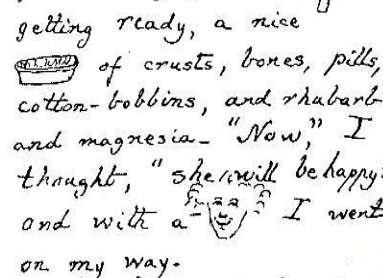 getting ready, a nice
of crusts, bones, pills,
cotton-bobbins, and rhubarb
and magnesia - "Now," I
thought, "she will be happy:
and with a I went
on my way.